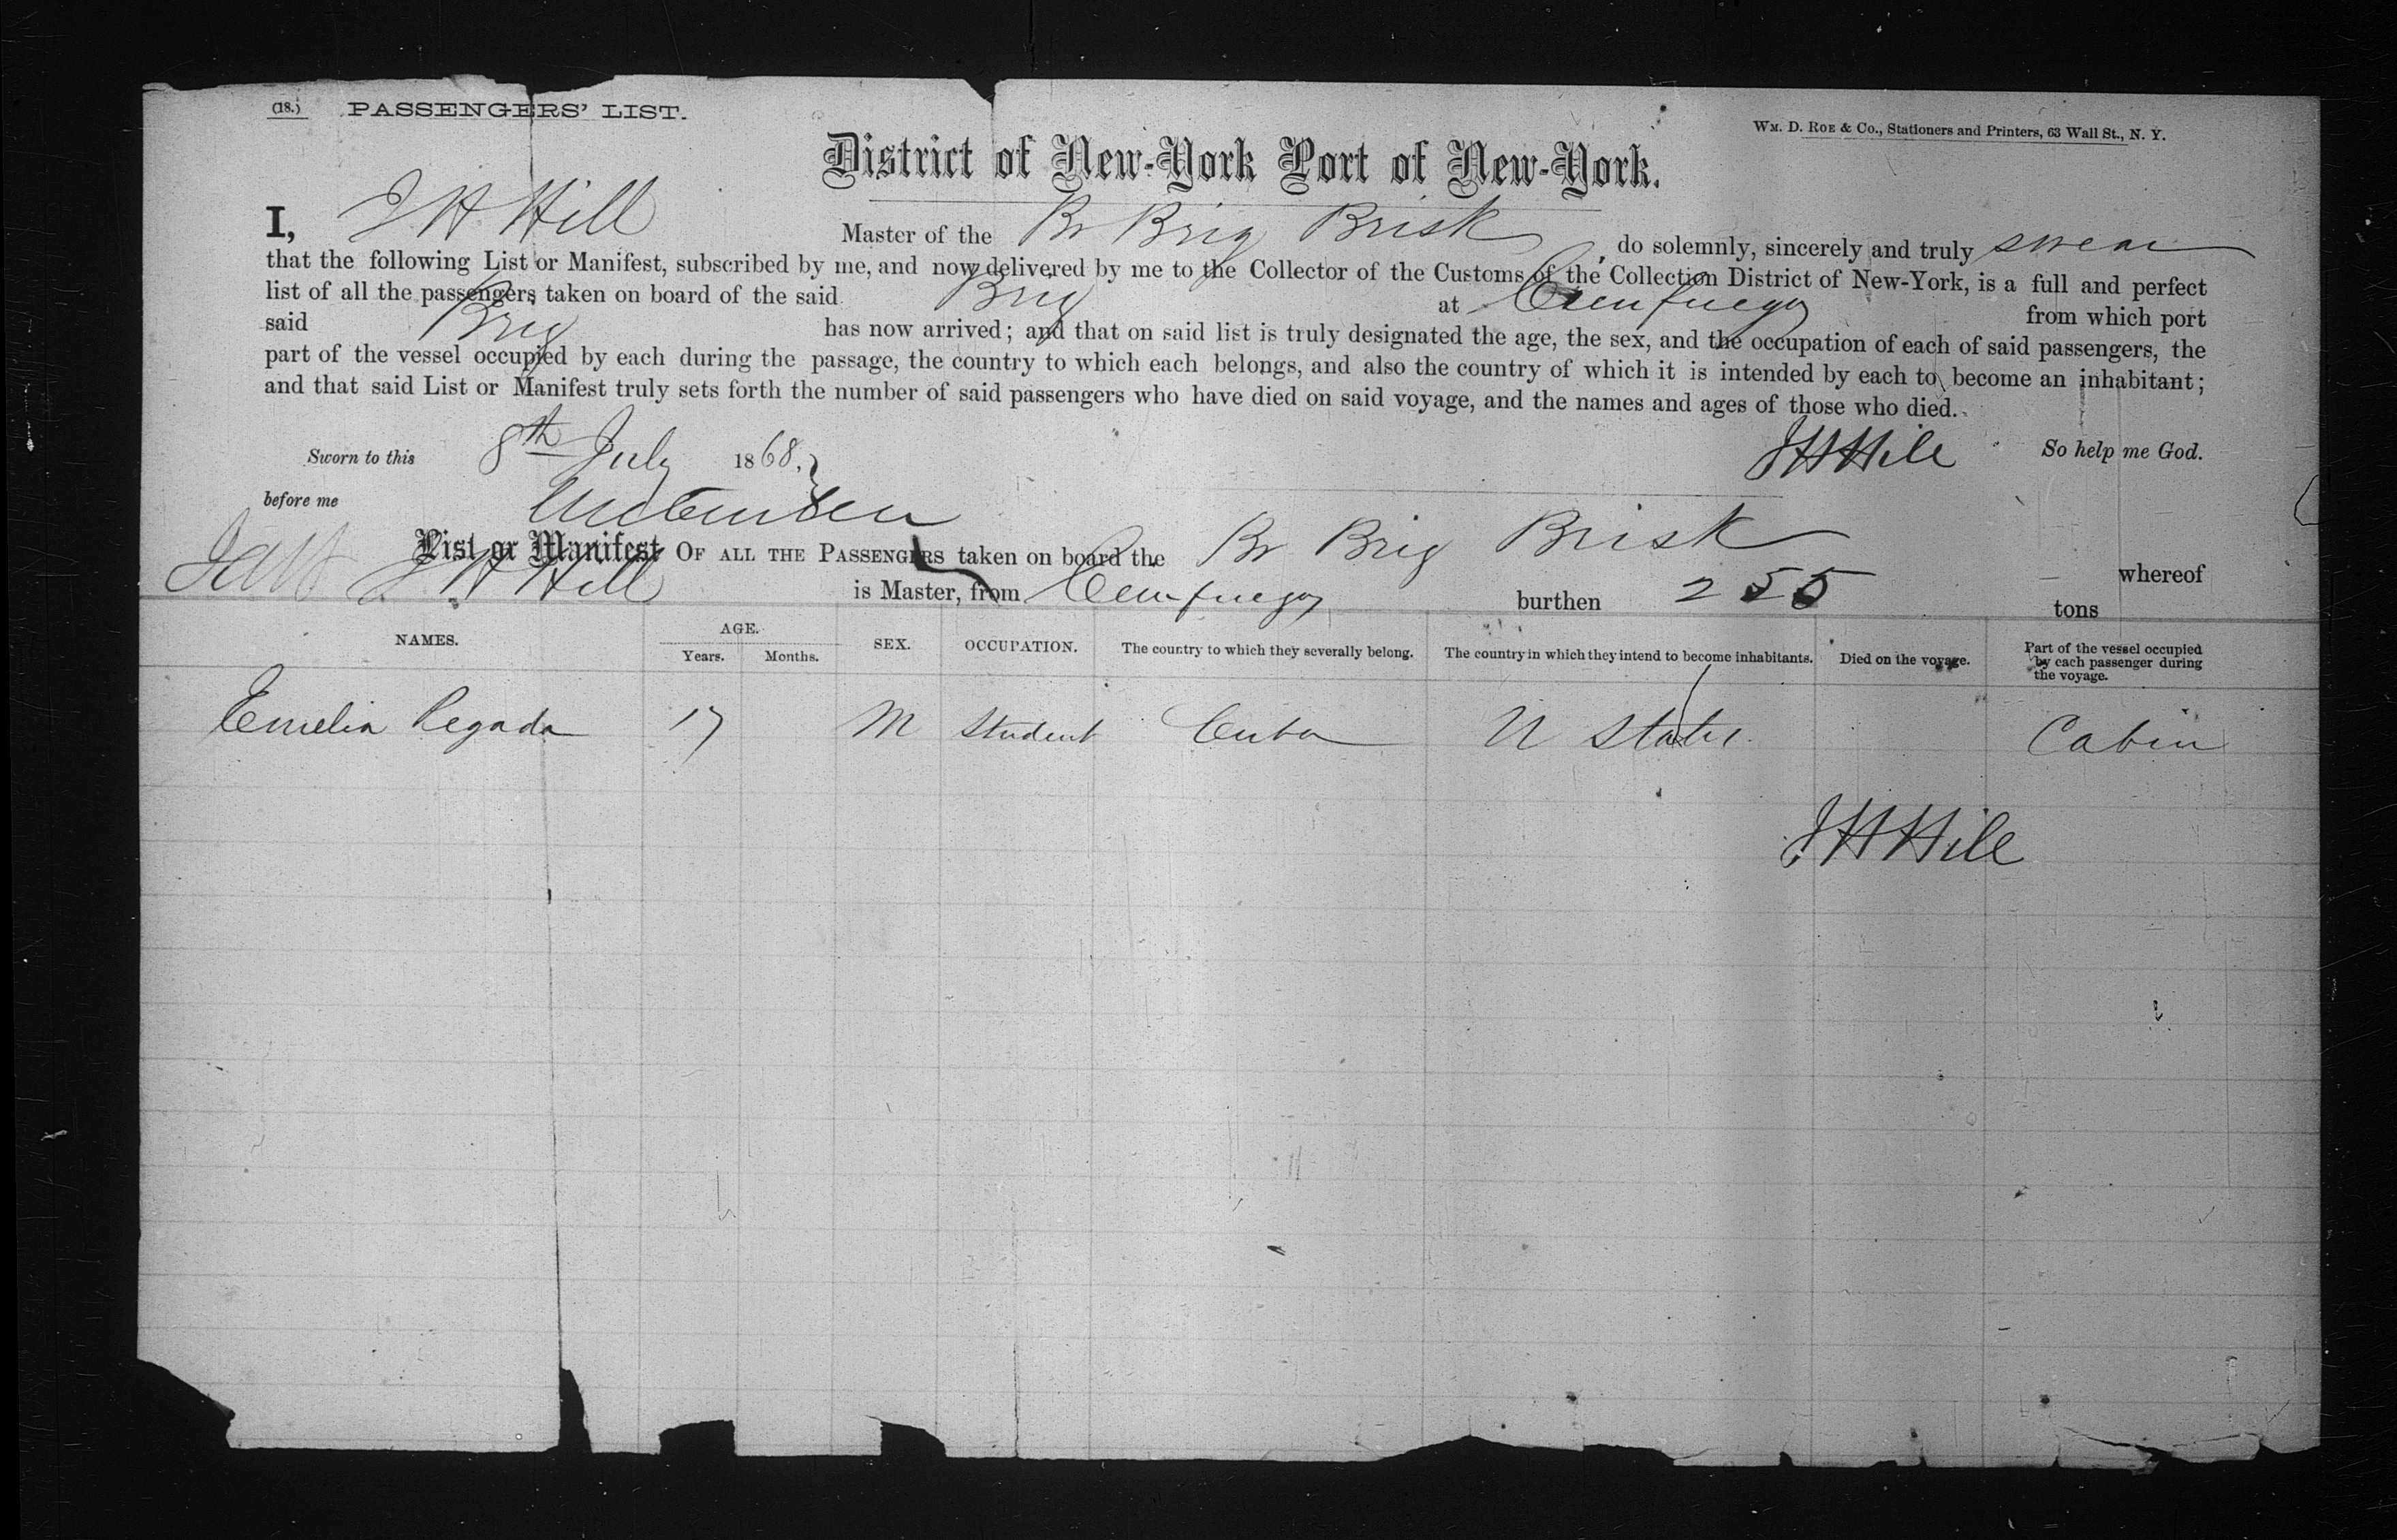 (18.) PASSENGERS' LIST.
WM. D. ROE & CO., Stationers and Printers, 63 Wall St., N. Y.
District of New-York Port of New-York.
I, J H Hill Master of the Br Brig Brisk, do solemnly, sincerely and truly swear
that the following List or Manifest, subscribed by me, and now delivered by me to the Collector of the Customs of the Collection District of New-York, is a full and perfect
list of all the passengers taken on board of the said Brig at Cienfuegos from which port
said Brig has now arrived; and that on said list is truly designated the age, the sex, and the occupation of each of said passengers, the
part of the vessel occupied by each during the passage, the country to which each belongs, and also the country of which it is intended by each to become an inhabitant;
and that said List or Manifest truly sets forth the number of said passengers who have died on said voyage, and the names and ages of those who died.
Sworn to this 8th July 1868, JH Hill So help me God.
before me
List or Manifest OF ALL THE PASSENGERS taken on board the Br Brig Brisk whereof
J H Hill is Master, from Cienfuegos burthen 255 tons
NAMES. AGE. Years. Months. SEX. OCCUPATION. The country to which they severally belong. The country in which they intend to become inhabitants. Died on the voyage. Part of the vessel occupied by each passenger during the voyage.
Emelia Regada 17 M Student Cuba U States Cabin
JH Hill